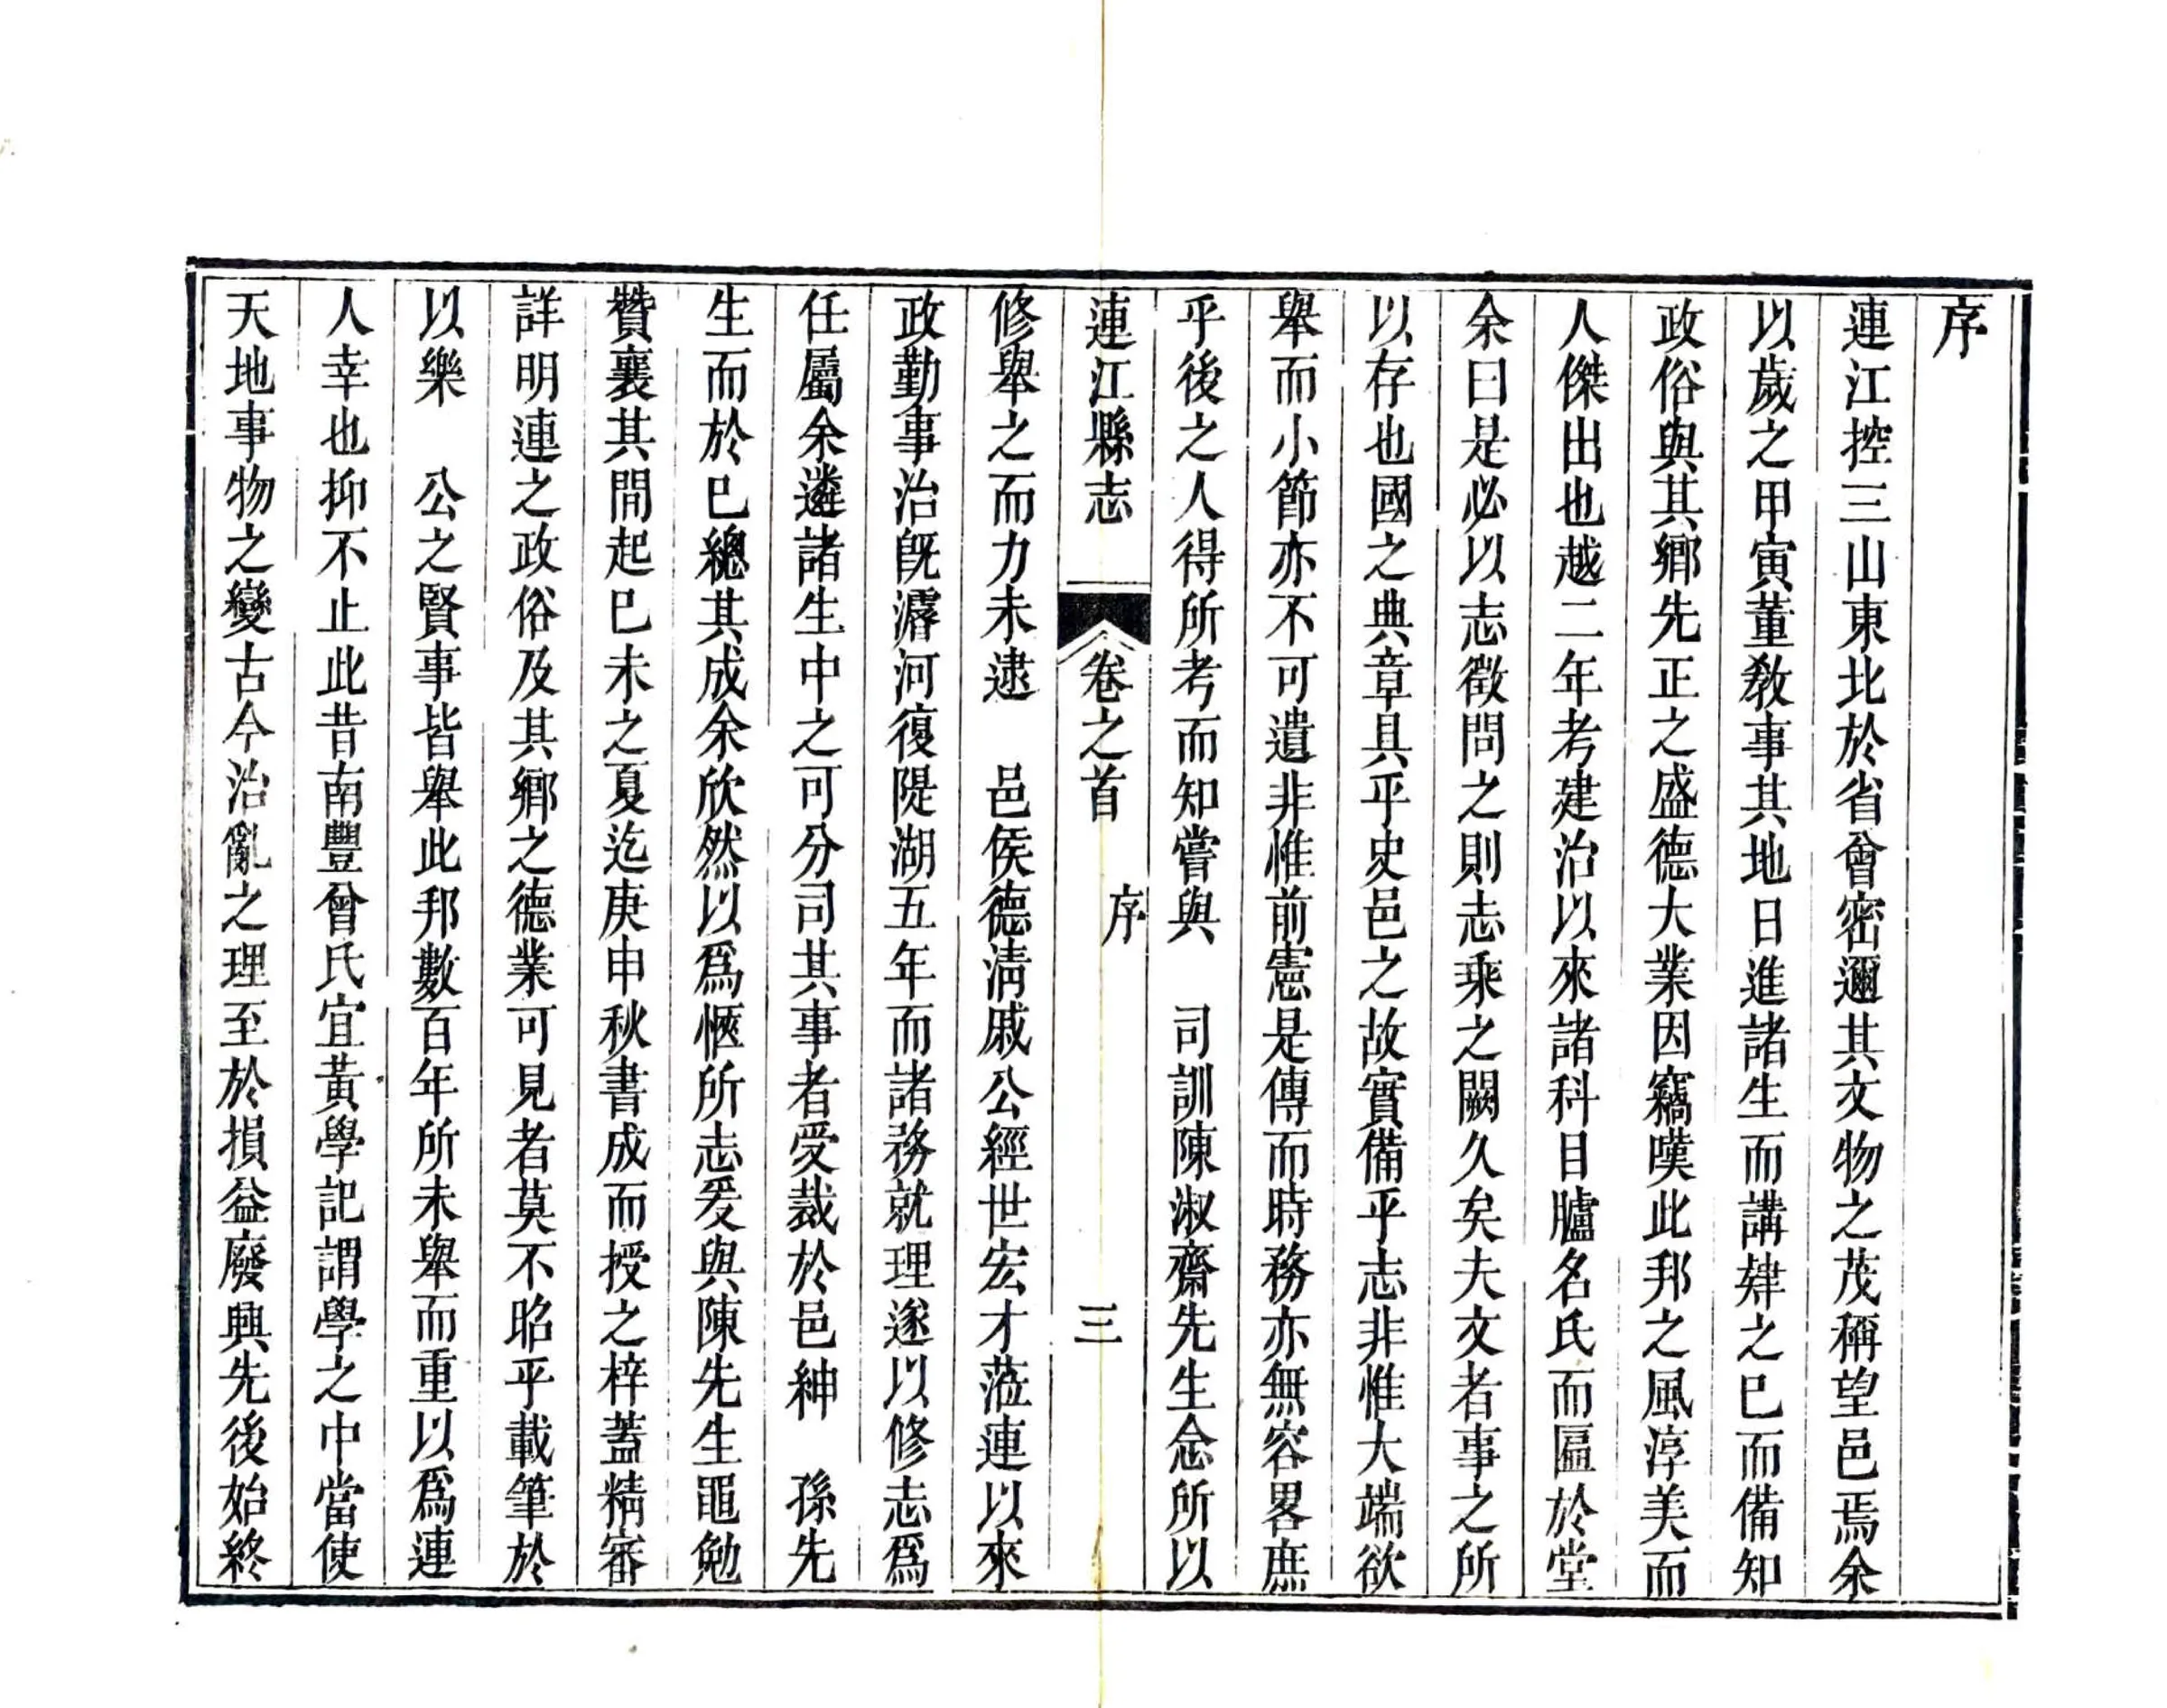 序
連江控三山東北於省會密邇其文物之茂稱望邑焉余
以歲之甲寅董敎事其地日進諸生而講肄之巳而備知
政俗與其鄉先正之盛德大業因竊嘆此邦之風淳美而
人傑出也越二年考建治以來諸科目臚名氏而匾於堂
余曰是必以志徵問之則志乘之闕久矣夫文者事之所
以存也國之典章具乎史邑之故實備乎志非惟大端欲
舉而小節亦不可遺非惟前憲是傳而時務亦無容畧庶
乎後之人得所考而知嘗與　司訓陳淑齋先生念所以
連江縣志　卷之首　序　三
修舉之而力未逮　邑侯德淸戚公經世宏才蒞連以來
政勤事治旣濬河復隄湖五年而諸務就理遂以修志爲
任屬余遴諸生中之可分司其事者受裁於邑紳　孫先
生而於巳總其成余欣然以爲愜所志爰與陳先生黽勉
贊襄其間起巳未之夏迄庚申秋書成而授之梓蓋精審
詳明連之政俗及其鄉之德業可見者莫不昭乎載筆於
以樂　公之賢事皆舉此邦數百年所未舉而重以爲連
人幸也抑不止此昔南豐曾氏宜黃學記謂學之中當使
天地事物之變古今治亂之理至於損益廢興先後始終